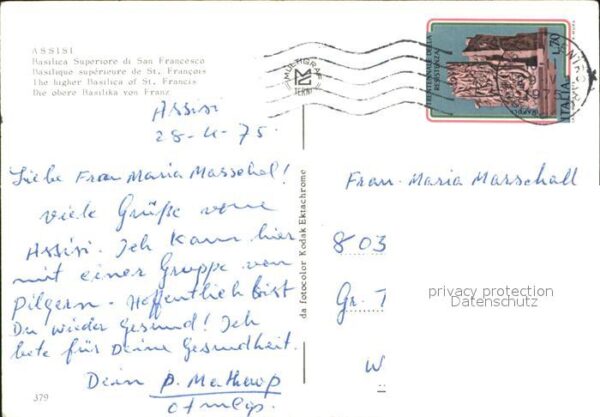 ASSISI
Basilica Superiore di San Francesco
Basilique supérieure de St. François
The higher Basilica of St. Francis
Die obere Basilika von Franz
MULTIGRAF
TERNI
TRENTENNALE DELLA
RESISTENZA
L.70
ITALIA
Assisi
28-4-75
Liebe Frau Maria Marschal!
viele Grüße vone
Assisi. Ich kam hier
mit einer Gruppe von
Pilgern - Hoffentlich bist
Du wieder Gesund! Ich
bete für Deine Gesundheit.
Dein P.
379
da fotocolor Kodak Ektachrome
Frau. Maria Marschall
803
Gr. T
W
privacy protection
Datenschutz